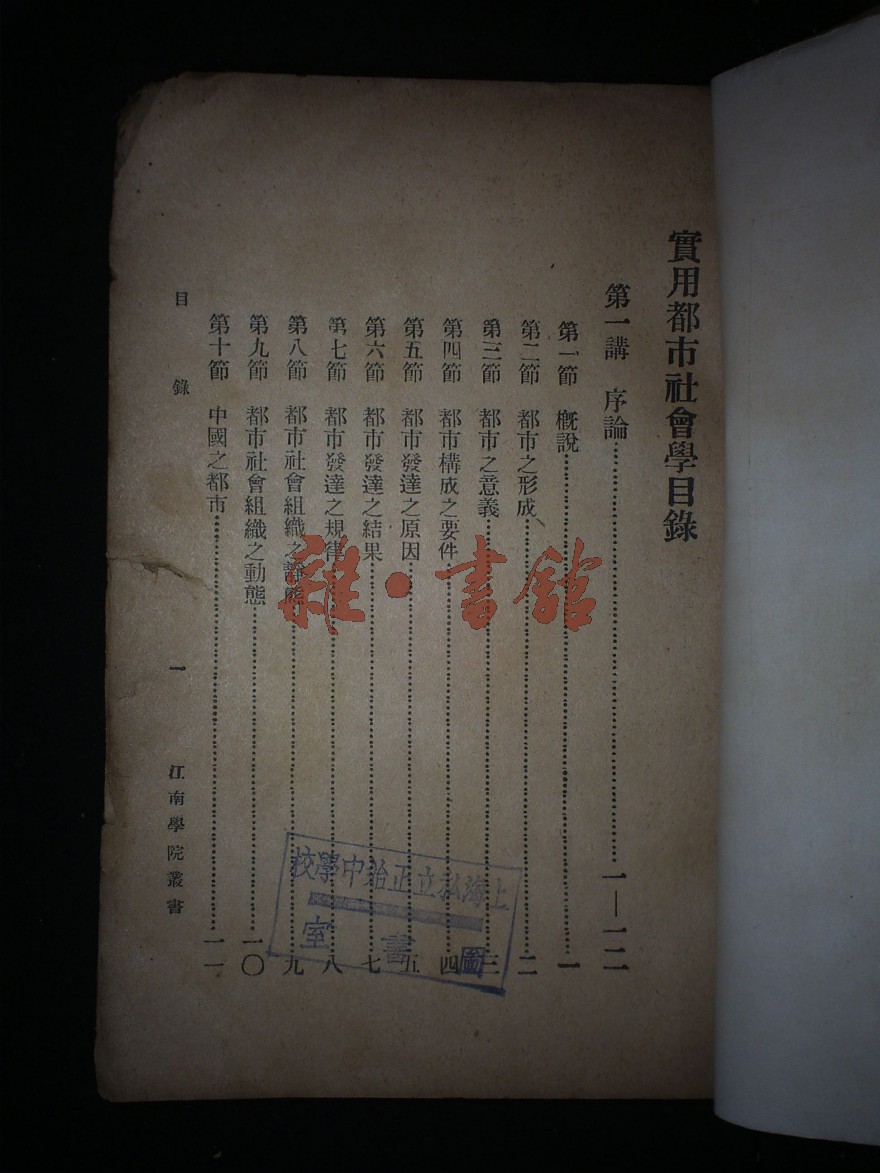 實用都市社會學目錄
第一講　序論……一—一二
第一節　概說……一
第二節　都市之形成……二
第三節　都市之意義……三
第四節　都市構成之要件……四
第五節　都市發達之原因……五
第六節　都市發達之結果……七
第七節　都市發達之規律……八
第八節　都市社會組織之靜態……九
第九節　都市社會組織之動態……一〇
第十節　中國之都市……一一
目錄
一
江南學院叢書
上海私立正始中學校
圖書室
雜·書館